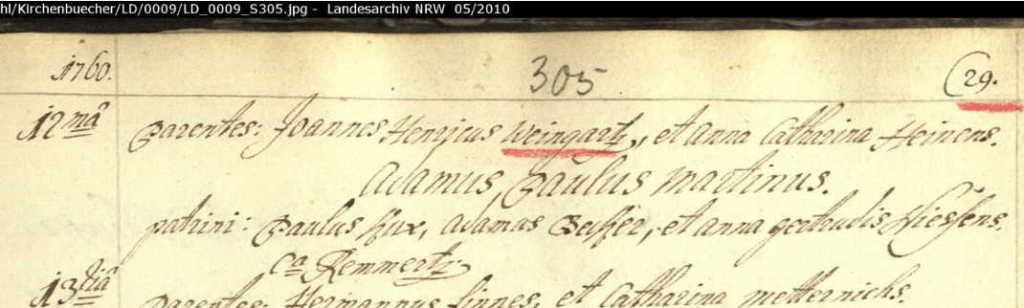 hl/Kirchenbuecher/LD/0009/LD_0009_S305.jpg - Landesarchiv NRW 05/2010
1760. 305 (29.
12mã parentes: Joannes Henricus Weingartz, et anna Catharina Heinens.
Adamus, Paulus martinus.
patrini: Paulus Kux, adamus et anna gertrudis Hiessens.
cã Remmertz
13tiã parentes: Hermannus Linnes, et Catharina metternichs